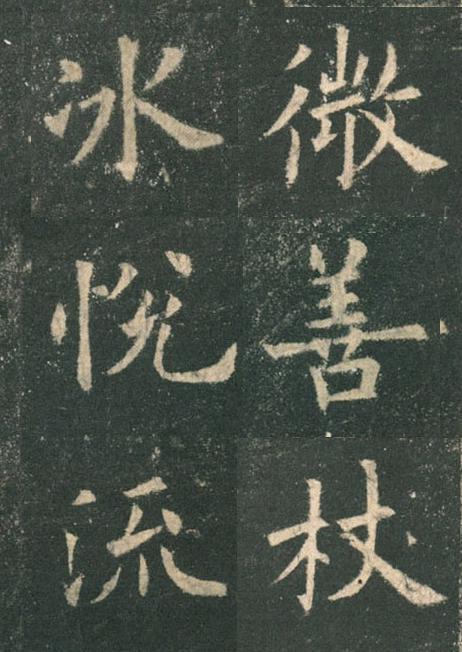 微善杖
冰悦流